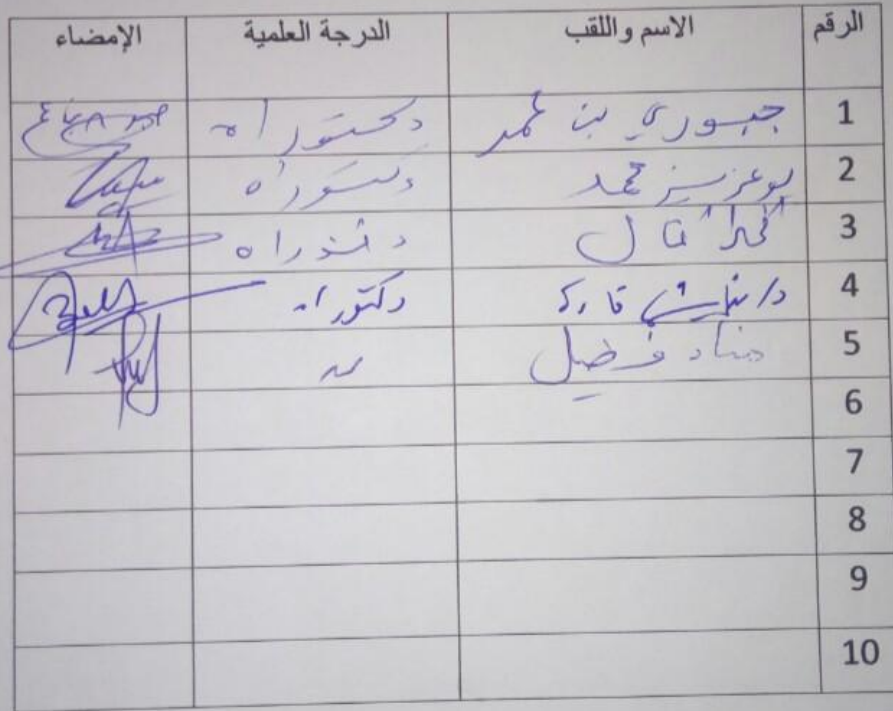 الرقم الاسم واللقب الدرجة العلمية الإمضاء
1 جبوري بن محمد دكتوراه
2 بوعزيز محمد دكتوراه
3 دكتوراه
4 د/ قارة دكتوراه
5 مناد فضيل
6
7
8
9
10